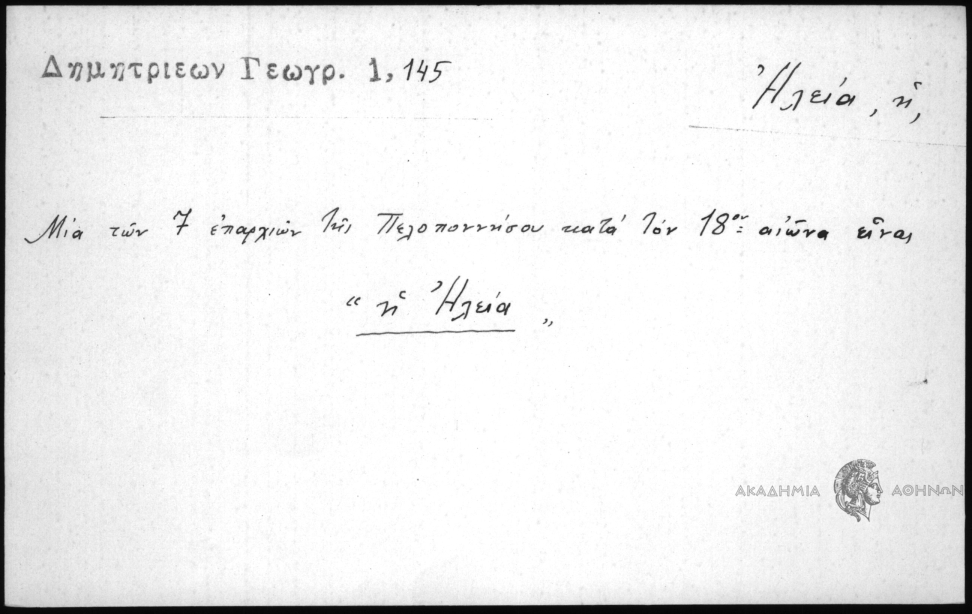 Δημητριεων Γεωγρ. 1, 145
Ἠλεία, ἡ,
Μία τῶν 7 ἐπαρχιῶν τῆς Πελοποννήσου κατά τόν 18ον αἰῶνα εἶναι
“ ἡ Ἠλεία „
ΑΚΑΔΗΜΙΑ ΑΘΗΝΩΝ